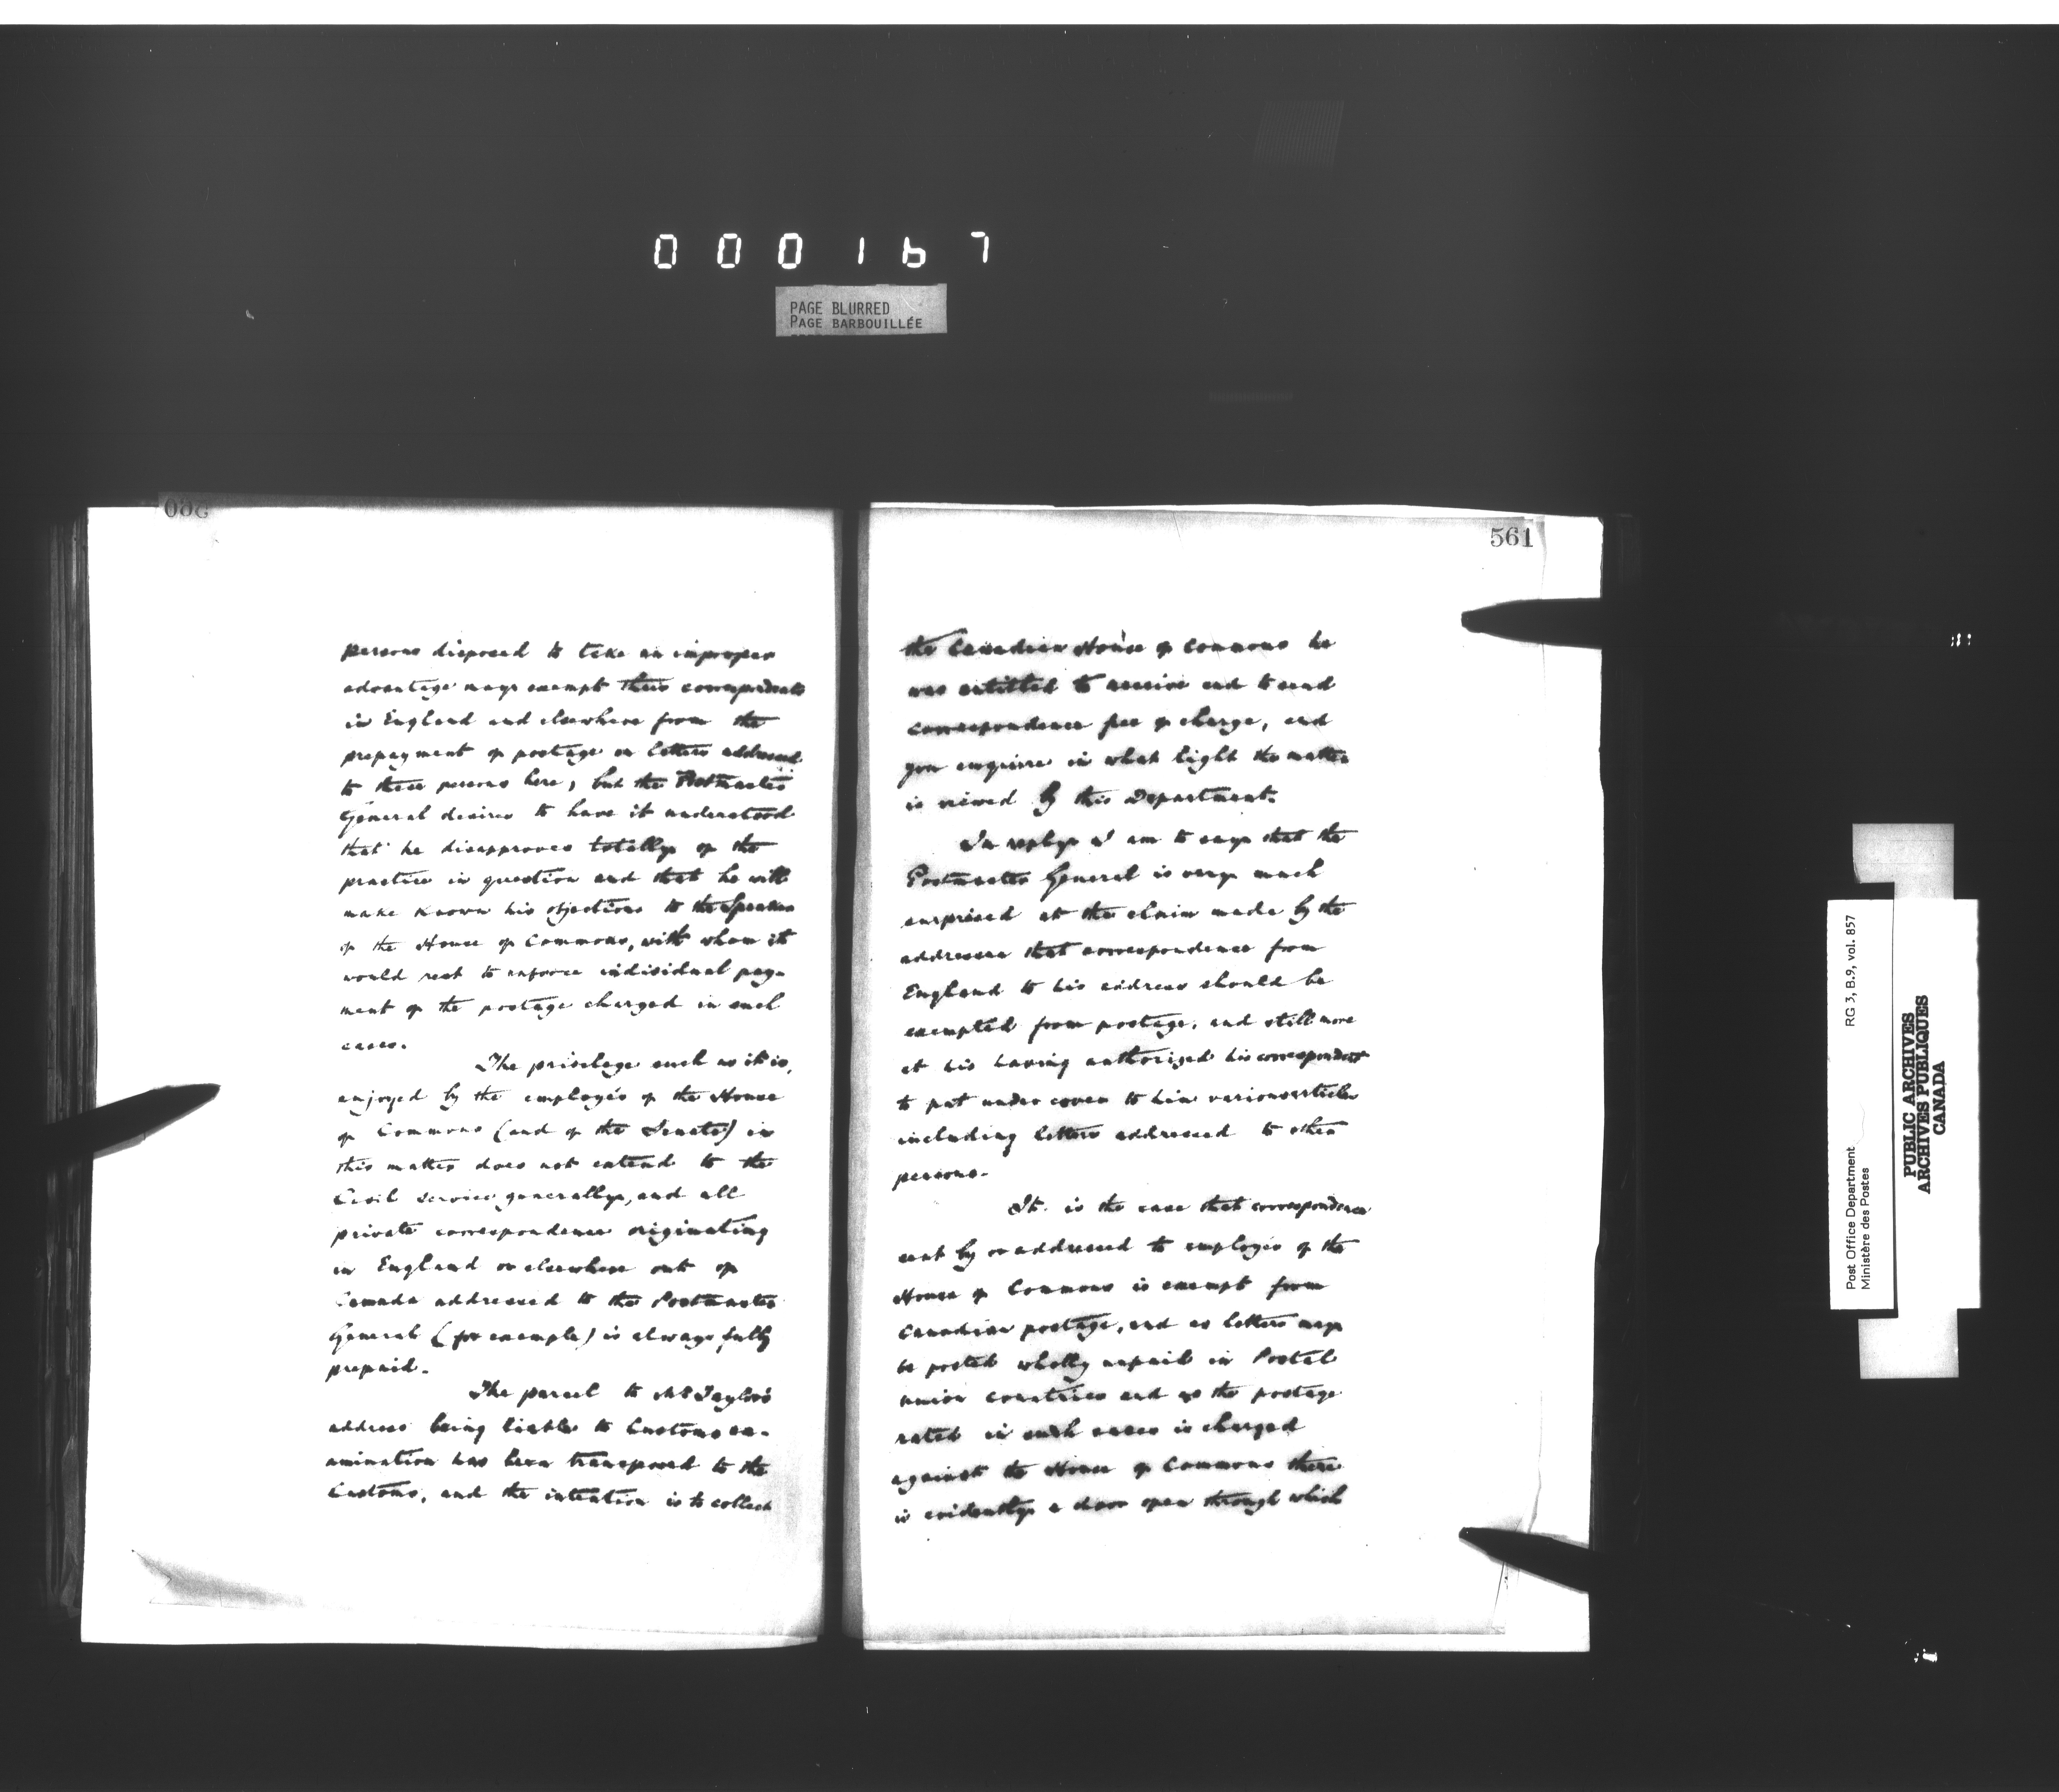 000167
PAGE BLURRED
PAGE BARBOUILLÉE
persons disposed to take an improper
advantage may exempt their correspondents
in England and elsewhere from the
prepayment of postage on letters addressed
to these persons here; but the Postmaster
General desires to have it understood
that he disapproves totally of the
practice in question and that he will
make known his objections to the Speaker
of the House of Commons, with whom it
would rest to enforce individual pay-
ment of the postage charged in such
cases.
The privilege such as it is,
enjoyed by the employés of the House
of Commons (and of the Senate) in
this matter does not extend to the
Civil Service generally, and all
private correspondence originating
in England or elsewhere out of
Canada addressed to the Postmaster
General (for example) is always fully
prepaid.
The parcel to Mr Taylor's
address being liable to Customs ex-
amination has been transferred to the
Customs, and the intention is to collect
561
the Canadian House of Commons he
was entitled to receive and to send
correspondence free of charge, and
you enquire in what light the matter
is viewed by this Department.
In reply I am to say that the
Postmaster General is very much
surprised at the claim made by the
addressee that correspondence from
England to his address should be
exempted from postage, and still more
at his having authorized his correspondent
to put under cover to him various articles
including letters addressed to other
persons.
It is the case that correspondence
sent by or addressed to employés of the
House of Commons is exempt from
Canadian postage, and as letters may
be posted wholly unpaid in Postal
Union countries and as the postage
rated in such cases is charged
against the House of Commons there
is evidently a door open through which
Post Office Department
Ministère des Postes
RG 3, B.9, vol. 857
PUBLIC ARCHIVES
ARCHIVES PUBLIQUES
CANADA